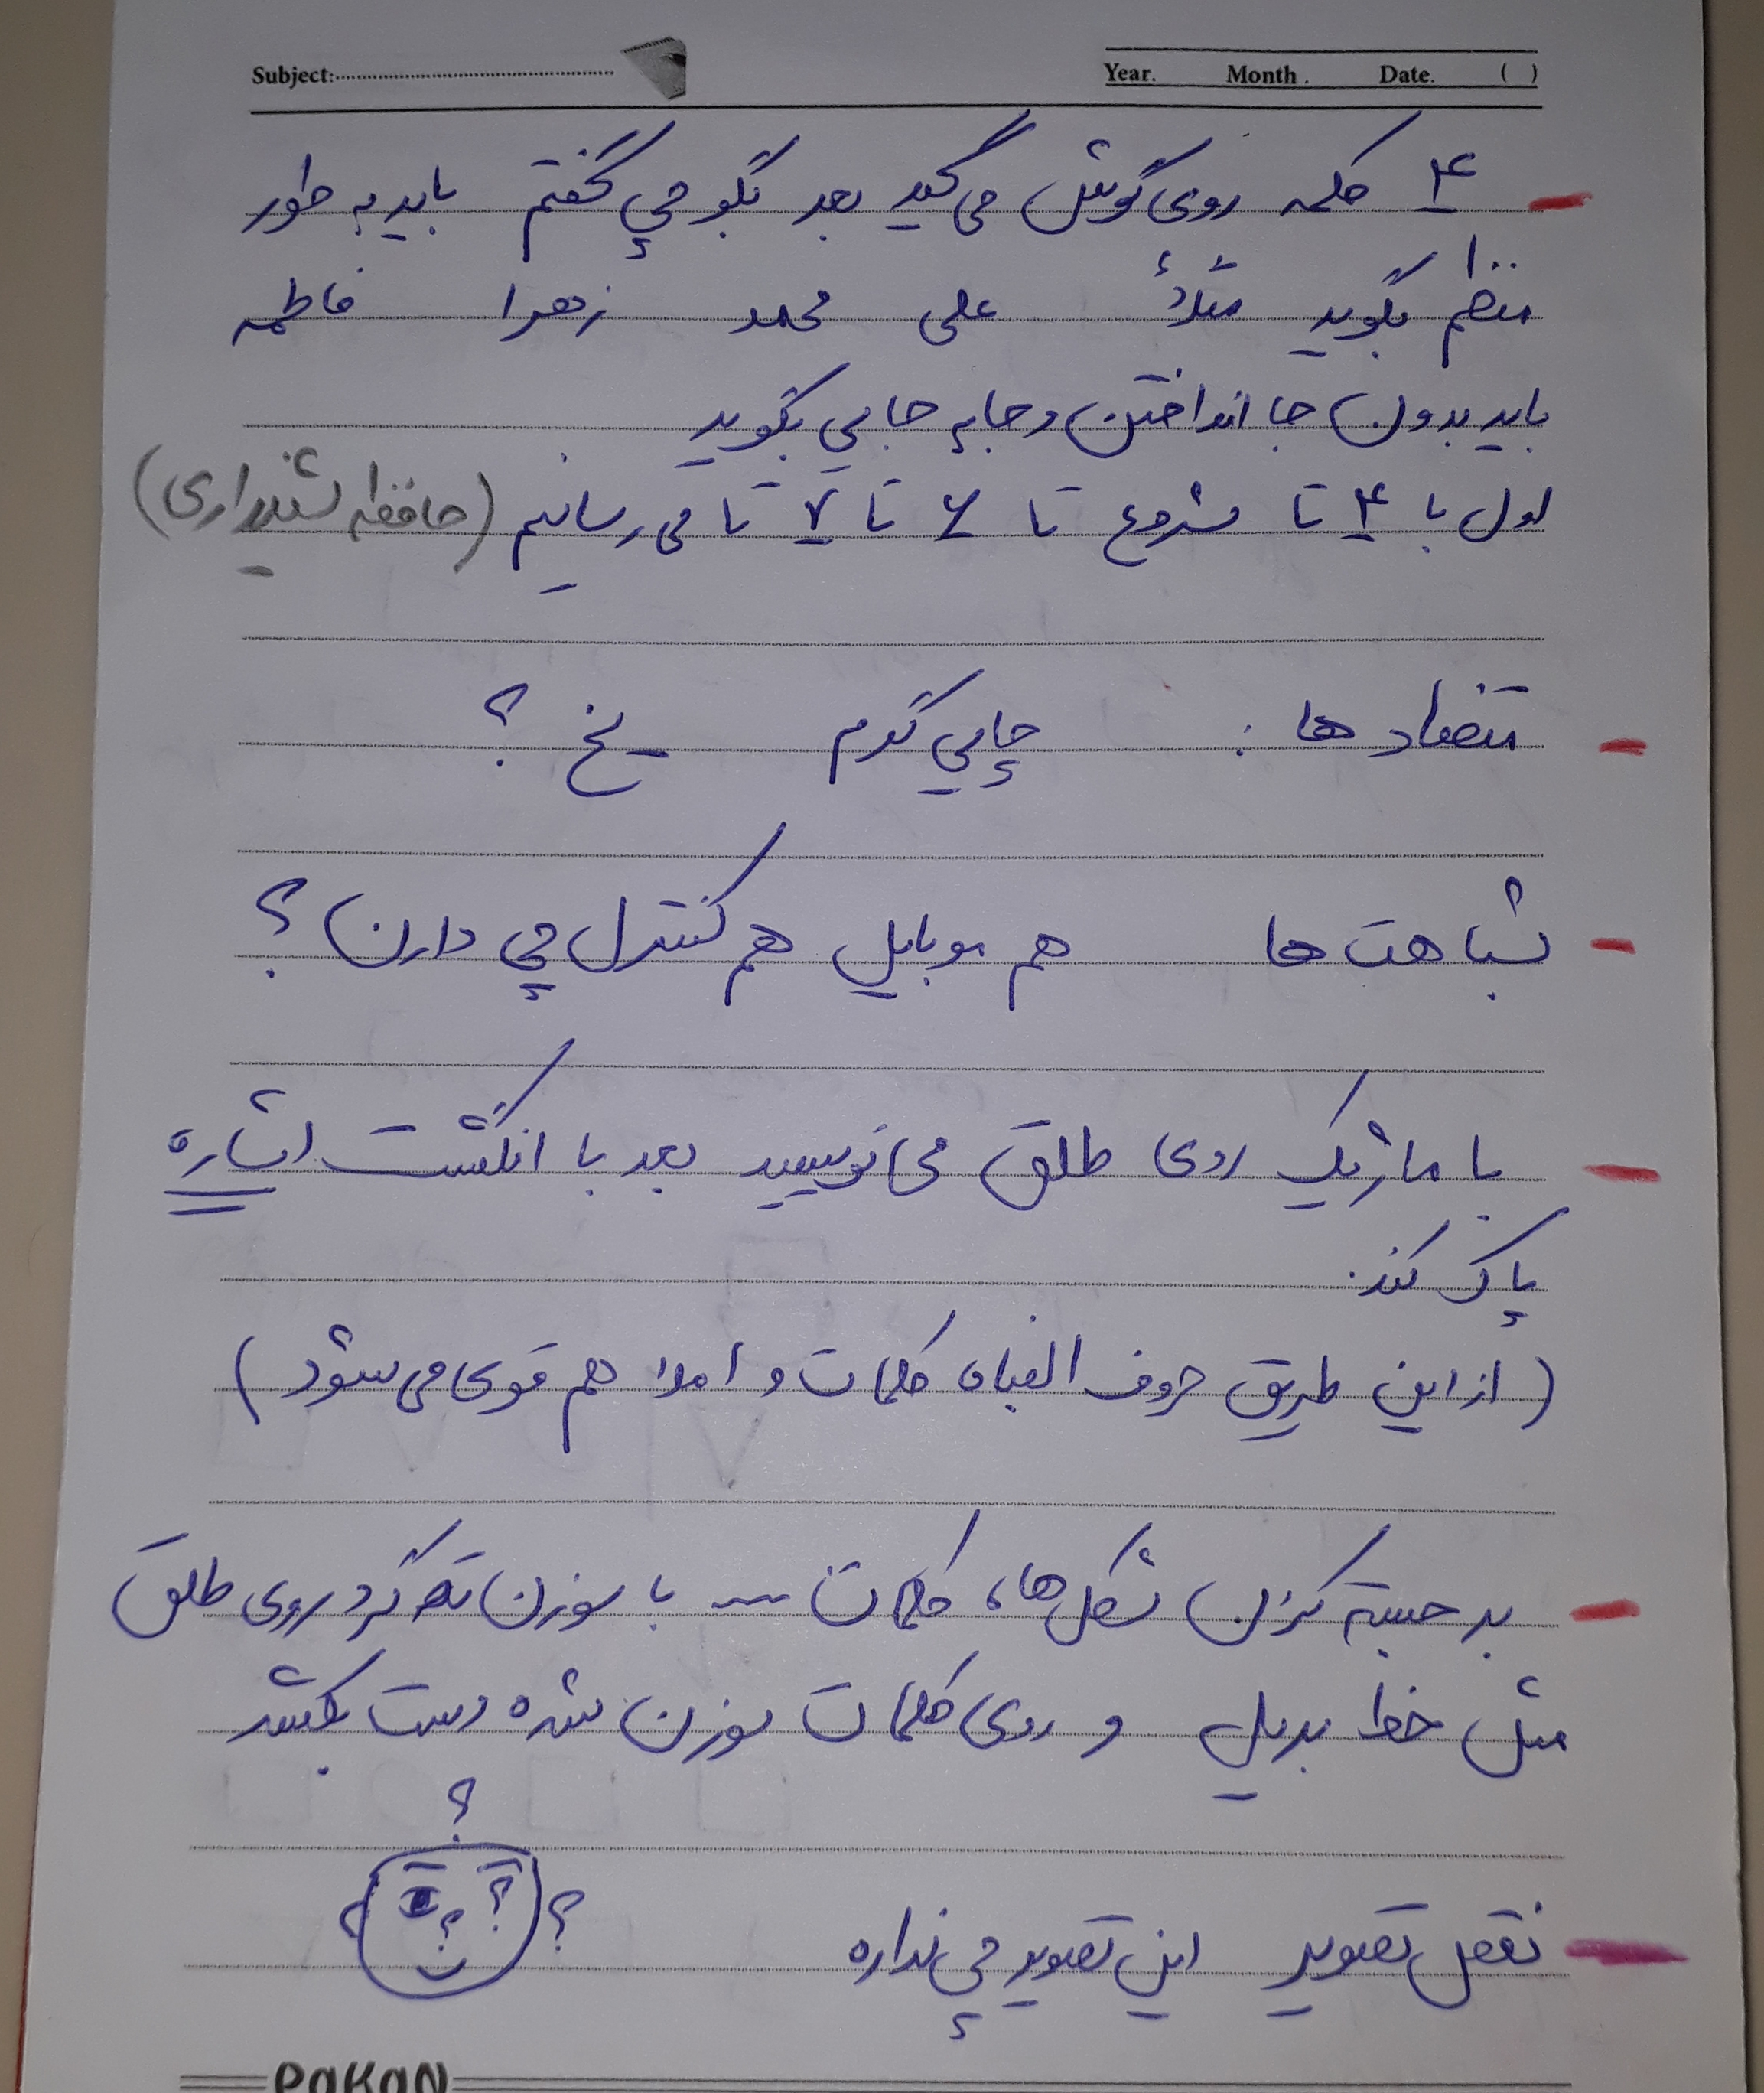 Subject: Year. Month. Date. ( )
- ۴ کلمه روی گوشش می گید بعد بگو چی گفتم باید به طور
منظم بگوید مثلاً علی محمد زهرا فاطمه
باید بدون جا انداختن و جابه جایی بگوید
اول با ۴ تا شروع تا ۶ تا ۷ تا می رسانیم (حافظه شنیداری)
- تضاد ها : چایی گرم یخ ؟
- شباهت ها هم موبایل هم کنترل چی دارن ؟
- با ماژیک روی طلق می نویسید بعد با انگشت اشاره
پاک کند.
(از این طریق حروف الفبا، کلمات و املا هم قوی می شود)
- برجسته کردن شکل ها، کلمات ... با سوزن ته گرد روی طلق
مثل خط بریل و روی کلمات سوزن شده دست بکشد
؟
- نقص تصویر این تصویر چی نداره ؟ ؟ ؟ ؟
PaKaN